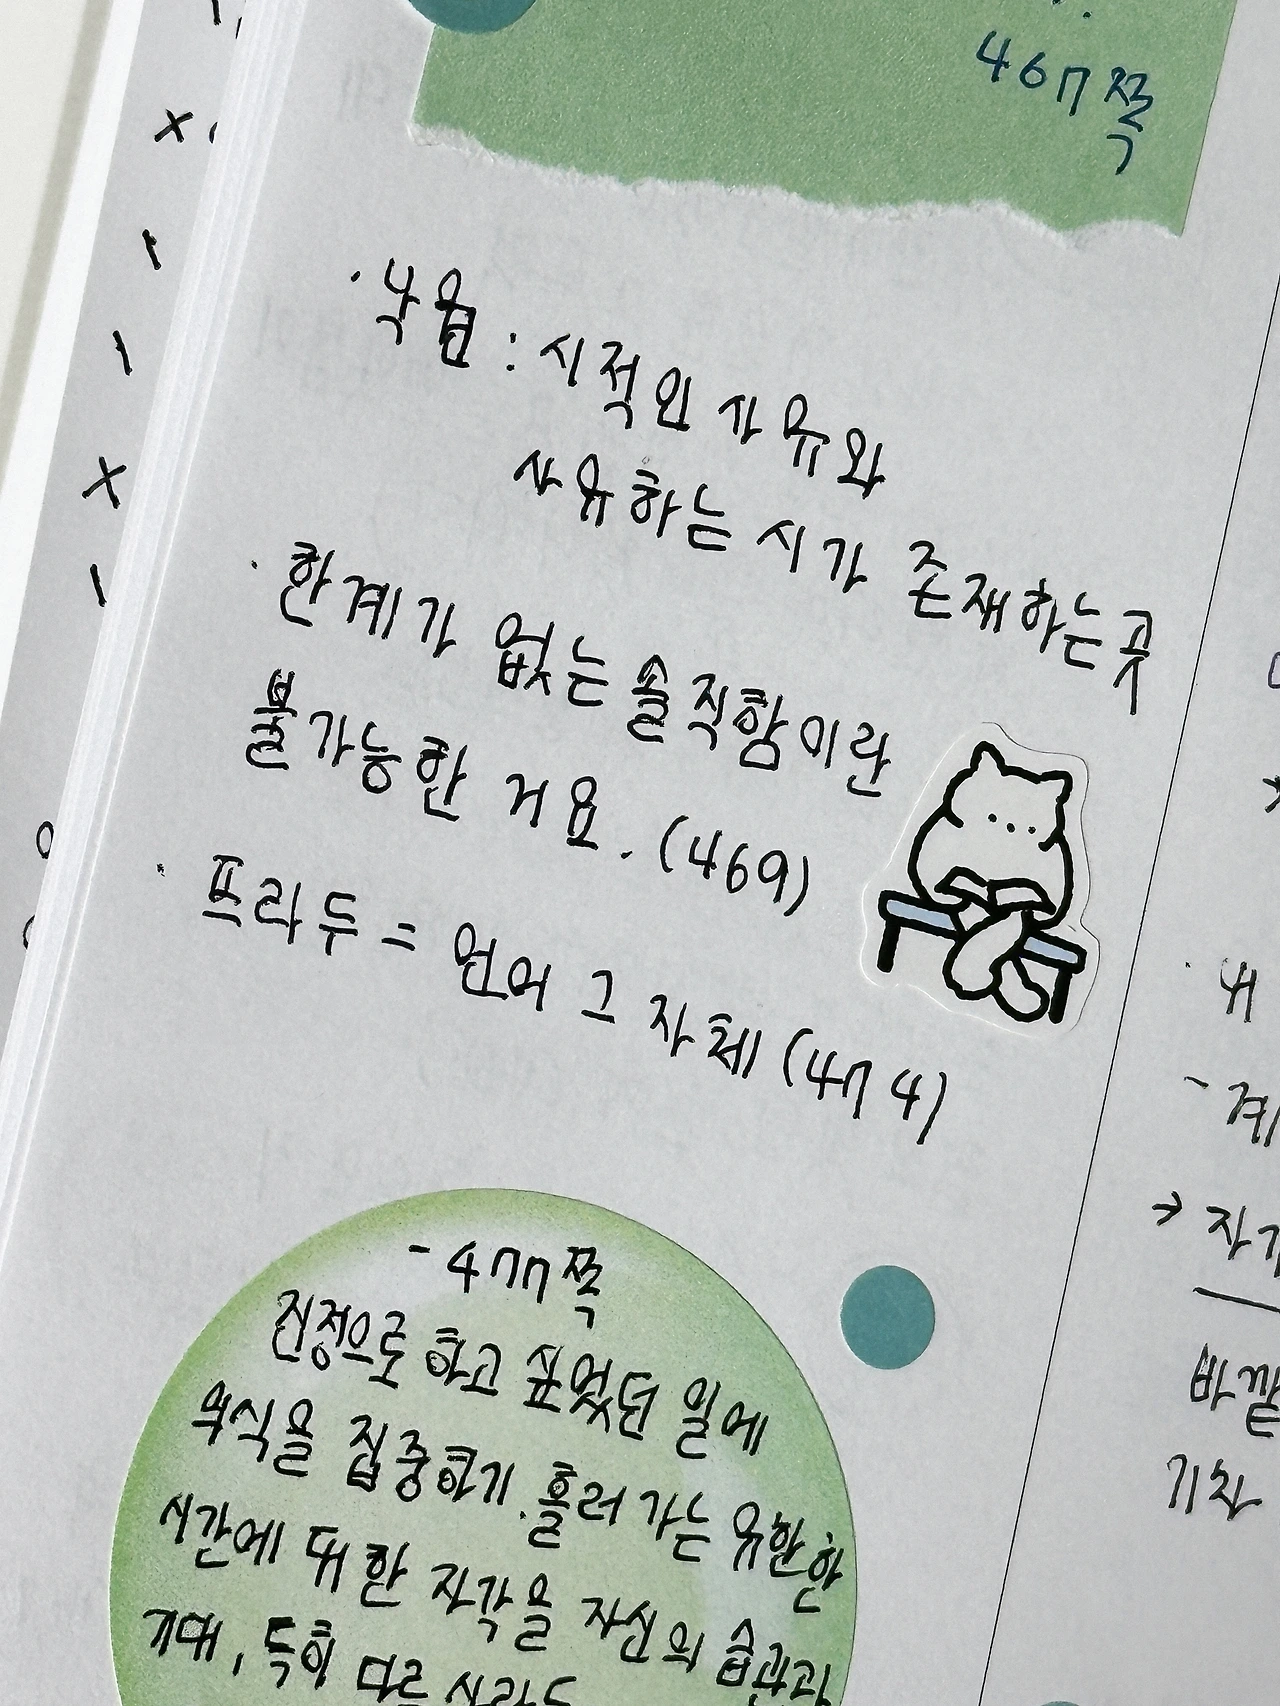 467쪽
· 낙원 : 시적인 사유와
사유하는 시가 존재하는 곳
· 한계가 없는 솔직함이란
불가능한 거요. (469)
· 프라두 = 언어 그 자체 (474)
- 477쪽
진정으로 하고 싶었던 일에
의식을 집중하기. 흘러가는 유한한
시간에 대한 자각을 자신의 습관과
기대, 특히 다른 사람들
내
- 계
→ 자기
바깥
기차